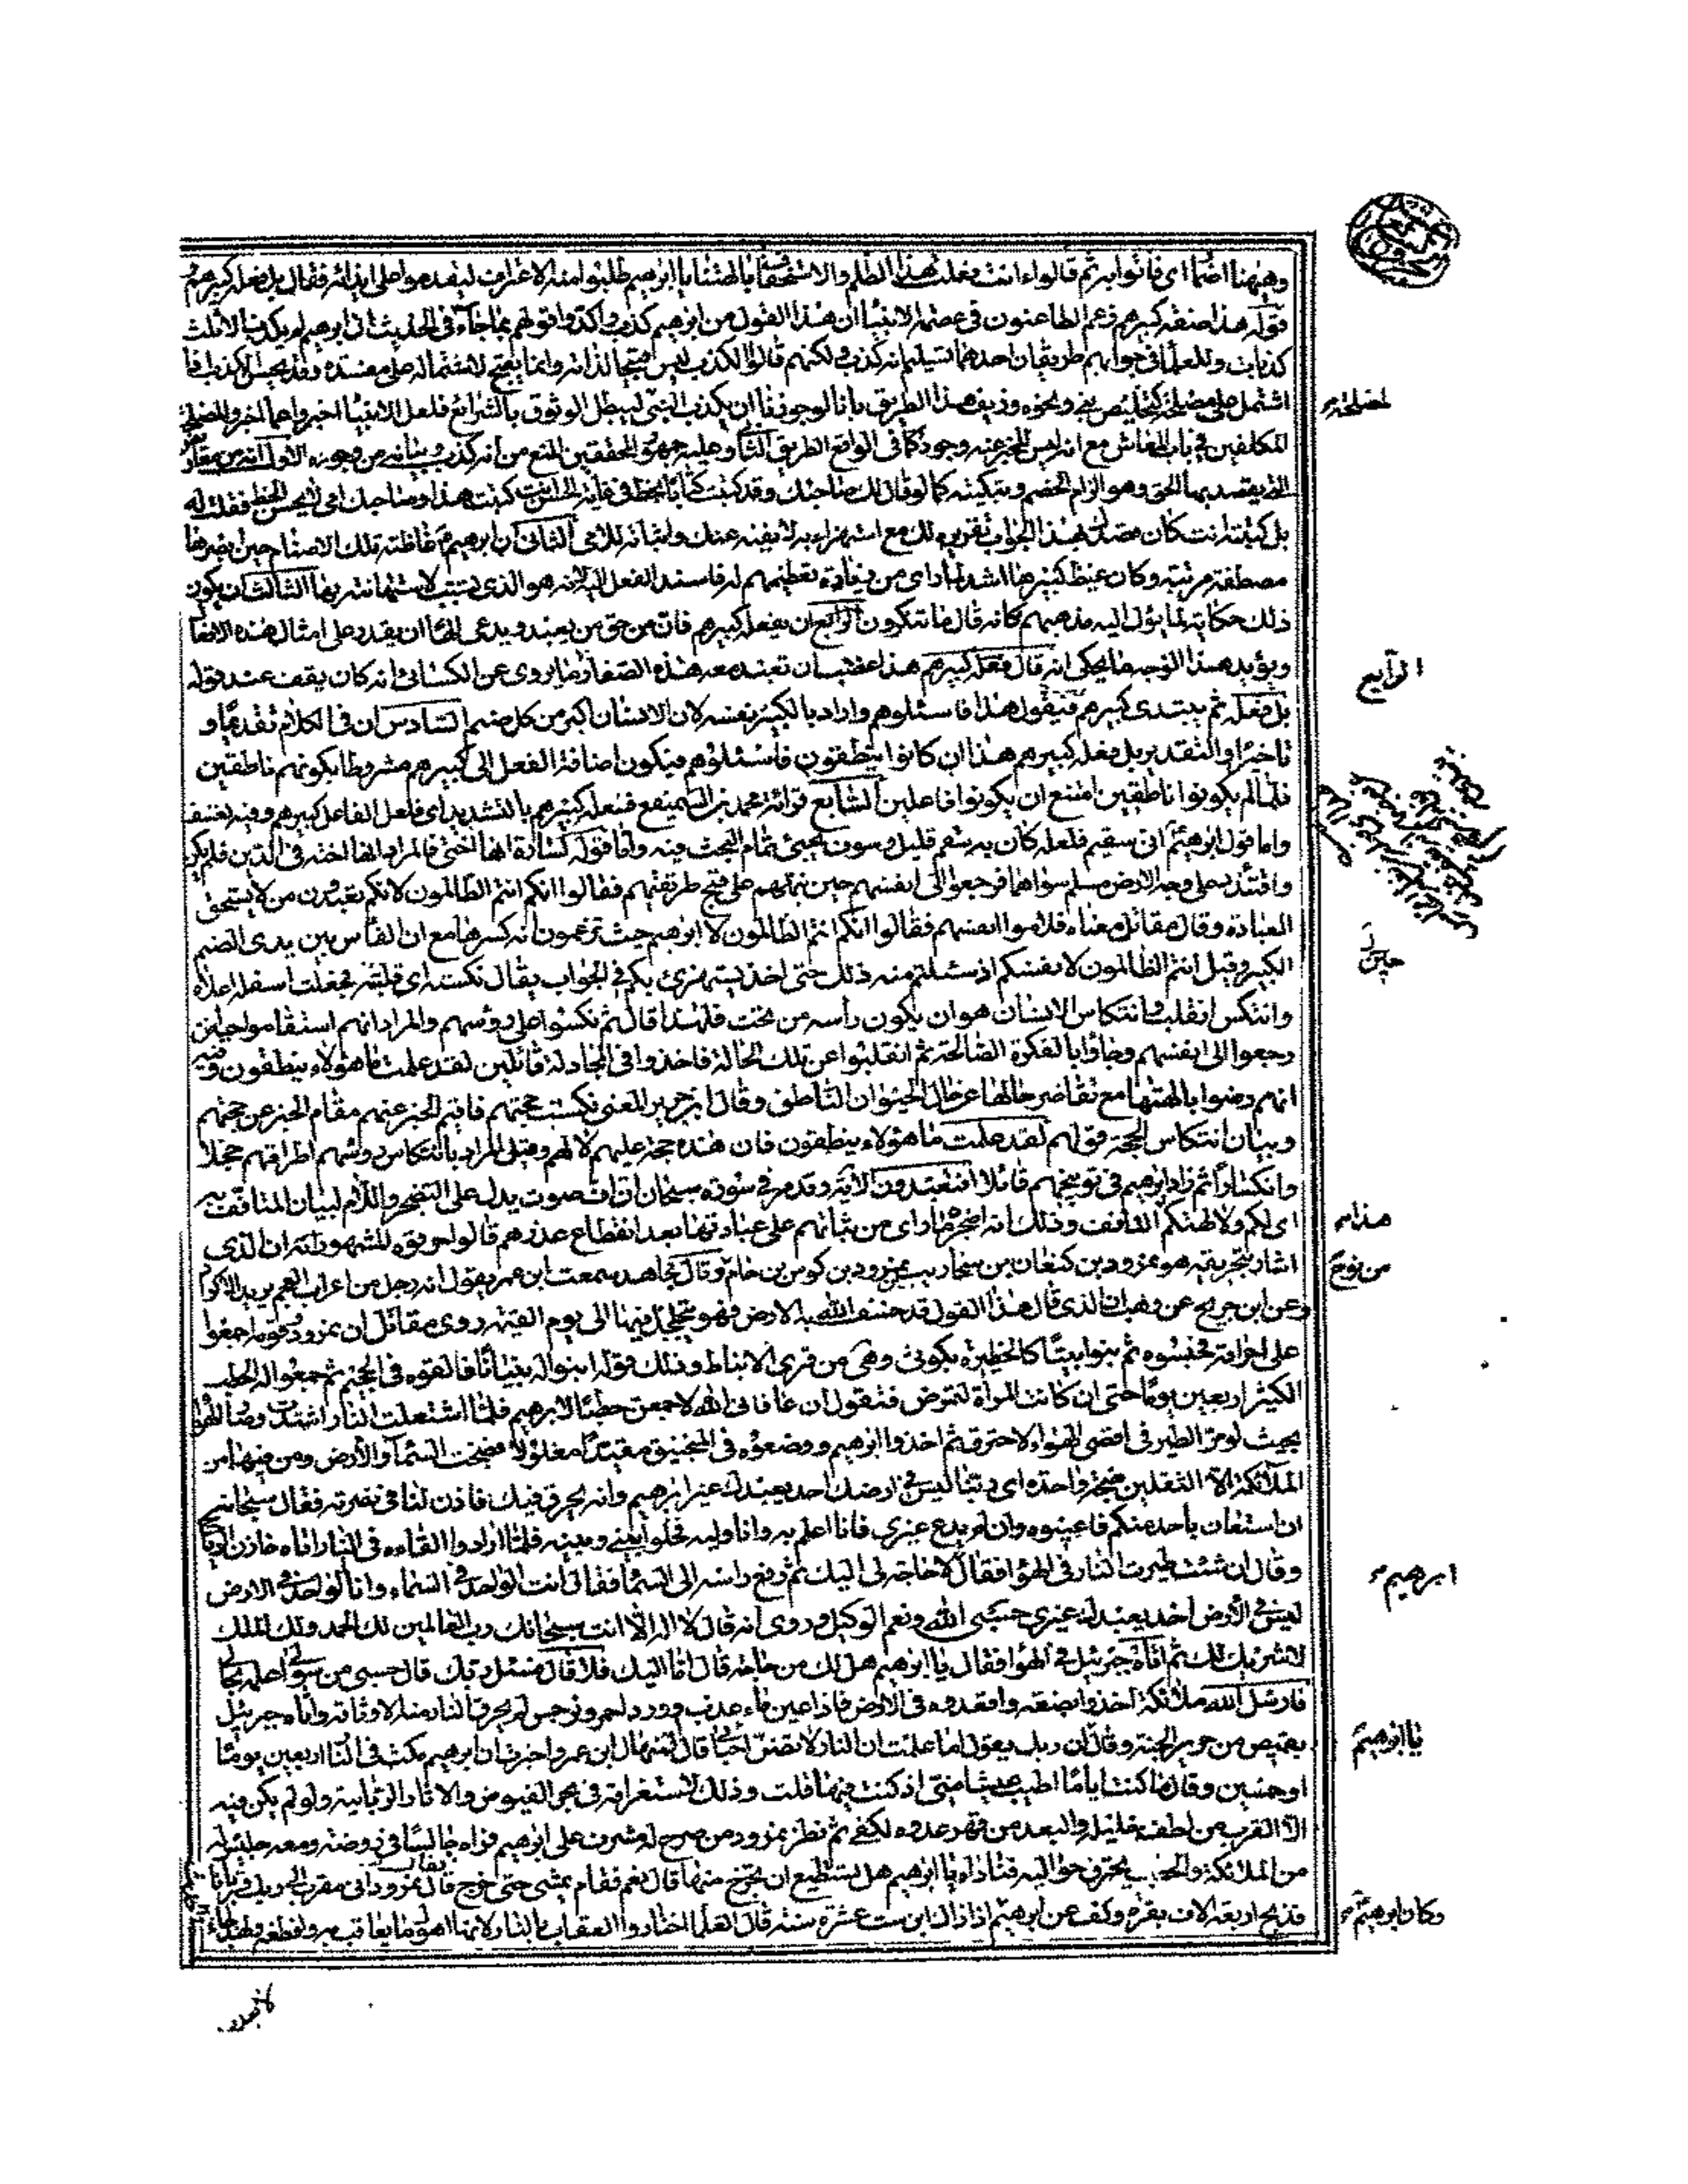 وههنا اضمار اى فاتوا به ثم قالوا ءانت فعلت هذا الظلم والاستخفاف بالهتنا يا ابرهيم طلبوا منه الاعتراف ليقدموا على ايذائه فقال بل فعله كبيرهم
قوله هذا صنفه كبيرهم زعم الطاعنون فى عصمة الانبيا ان هذا القول من ابرهيم كذب واكدوا قولهم بما جاء فى الحديث ان ابرهيم لم يكذب الا ثلث
كذبات وللعلما فى جوابهم طريقان احدهما تسليم انه كذب ولكنهم قالوا الكذب ليس قبيحا لذاته وانما يقبح لاشتماله على مفسدة وقد يحسن الكذب اذا
اشتمل على مصلحة كتخليص نبى ونحوه وزيف هذا الطريق بانا لو جوزنا ان يكذب النبى لبطل الوثوق بالشرائع فلعل الانبيا اخبروا عما اخبروا لمصلحة
المكلفين فى باب المعاش مع انه ليس للمخبر عنه وجود كما فى الواقع الطريق الثانى وعليه جمهور المحققين المنع من انه كذب وبيانه من وجوه الاول انه من معاريض
التى يقصد بها الحق وهو الزام الخصم وتبكيته كما لو قال لك صاحبك وقد كتبت كتابا بخط فى غاية الحسن انت كتبت هذا وصاحبك امى لا يحسن الخط فقلت له
بل كتبته انت كان قصدك بهذا الجواب تقريره لك مع استهزاء به لا نفيه عنك واثباته للامى الثانى ان ابرهيم غاظته تلك الاصنام حين ابصرها
مصطفة مرتبة وكان غيظ كبيرها اشد لما راى من زيادة تعظيمهم له فاسند الفعل اليه لانه هو الذى تسبب لاستهانته بها الثالث ان يكون
ذلك حكاية لما يؤل اليه مذهبهم كانه قال ما تنكرون الرابع ان يفعله كبيرهم فان من حق من يعبد ويدعى الها ان يقدر على امثال هذه الافعال
ويؤيد هذا الوجه ما يحكى انه قال فعله كبيرهم هذا غضب ان تعبد معه هذه الصغار وما يروى عن الكسائى انه كان يقف عند قوله
بل فعله ثم يبتدى كبيرهم فيقول هذا فاسئلوهم واراد بالكبير نفسه لان الانسان اكبر من كل صنم السادس ان فى الكلام تقديما و
تاخيرا والتقدير بل فعله كبيرهم هذا ان كانوا ينطقون فاسئلوهم فيكون اضافة الفعل الى كبيرهم مشروطا بكونهم ناطقين
فلما لم يكونوا ناطقين امتنع ان يكونوا فاعلين السابع قرائة محمد بن السميفع فعله كبيرهم بالتشديد اى فلعل الفاعل كبيرهم وفيه تعسف
واما قول ابرهيم انى سقيم فلعله كان به سقم قليل وسوف يجيئ تمام البحث فيه واما قوله لسارة انها اختى فالمراد انها اخته فى الدين فلم يكن
على وجه الارض مسلم سواهما فرجعوا الى انفسهم حين نبههم على قبح طريقتهم فقالوا انكم انتم الظالمون لانكم تعبدون من لا يستحق
العبادة وقال مقاتل معناه فلاموا انفسهم فقالوا انكم انتم الظالمون لابرهيم حيث تزعمون انه كسرها مع ان الفأس بين يدى الصنم
الكبير وقيل انتم الظالمون لانفسكم اذ سئلتم منه ذلك حتى اخذ يستهزئ بكم فى الجواب يقال نكسته اى قلبته فجعلت اسفله اعلاه
وانتكس انقلب وانتكاس الانسان هو ان يكون رأسه من تحت فلهذا قال ثم نكسوا على رؤسهم والمراد انهم استقاموا حين
رجعوا الى انفسهم وجاؤا بالفكرة الصالحة ثم انقلبوا عن تلك الحالة فاخذوا فى المجادلة قائلين لقد علمت ما هؤلاء ينطقون وفيه
انهم رضوا بالهتها مع تقاصر حالها عن حال الحيوان الناطق وقال ابن جرير المعنى نكست حجتهم فاقيم الخبر عنهم مقام الخبر عن حجتهم
وبيان انتكاس الحجة قولهم لقد علمت ما هؤلاء ينطقون فان هذه حجة عليهم لا لهم وقيل المراد بانتكاس رؤسهم اطراقهم خجلا
وانكسارا ثم زاد ابرهيم فى توبيخهم قائلا افتعبدون الاية وقد مر فى سورة سبحان ان اف صوت يدل على التضجر واللام لبيان المتافف به
اى لكم ولالهتكم التافف وذلك انه اضجره ما راى من ثباتهم على عبادتها بعد انقطاع عذرهم قالوا حرقوه المشهور ان الذى
اشار بتحريقه هو نمرود بن كنعان بن سنجاريب بن نمرود بن كوس بن حام وقال مجاهد سمعت ابن عمر يقول انه رجل من اعراب العجم يريد الاكراد
وعن ابن جريج عن وهب ان الذى قال هذا القول قد خسف الله به الارض فهو يتجلجل فيها الى يوم القيمة روى مقاتل ان نمرود وقومه اجمعوا
على احراقه فحبسوه ثم بنوا بيتا كالحظيرة بكوثى وهى من قرى الانباط وذلك قوله ابنوا له بنيانا فالقوه فى الجحيم ثم جمعوا له الحطب
الكثير اربعين يوما حتى ان كانت المراة لتمرض فتقول ان عافانى الله لاجمعن حطبا لابرهيم فلما اشتعلت النار اشتدت وصار الهوا
بحيث لو مر الطير فى اقصى الهواء لاحترق ثم اخذوا ابرهيم ووضعوه فى المنجنيق مقيدا مغلولا فضجت السماء والارض ومن فيها من
الملائكة الا الثقلين ضجة واحدة اى ربنا ليس فى ارضك احد يعبدك غير ابرهيم وانه يحرق فيك فاذن لنا فى نصرته فقال سبحانه
ان استغاث باحد منكم فاعينوه وان لم يدع غيرى فانا اعلم به وانا وليه فخلوا بينى وبينه فلما ارادوا القاءه فى النار اتاه خازن الرياح
وقال ان شئت طيرت النار فى الهوا فقال لا حاجة لى اليك ثم رفع راسه الى السما فقال انت الواحد فى السماء وانا الواحد فى الارض
ليس فى الارض احد يعبدك غيرى حسبى الله ونعم الوكيل وروى انه قال لا اله الا انت سبحانك رب العالمين لك الحمد ولك الملك
لا شريك لك ثم اتاه جبرئيل فى الهوا فقال يا ابرهيم هل لك من حاجة قال اما اليك فلا قال فسئل ربك قال حسبى من سؤالى علمه بحالى
فارسل الله ملائكة اخذوا بضعه واقعدوه فى الارض فاذا عين ماء عذب وورد احمر ونرجس لم يحرق النار منه الا وثاقه واتاه جبرئيل
بقميص من حرير الجنة وقال ان ربك يقول اما علمت ان النار لا تضر احبائى قال المنهال بن عمرو اخبرت ان ابرهيم مكث فى النار اربعين يوما
او خمسين وقال ما كنت اياما اطيب عيشا منى اذ كنت فيها قلت وذلك لاستغراقه فى بحر الفيوض والاثار الربانية ولو لم يكن فيه
الا القرب من لطف خليله والبعد من قهر عدوه لكفى ثم نظر نمرود من صرح له مشرف على ابرهيم فراه جالسا فى روضة ومعه جليس له
من الملائكة والحطب يحترق حواليه فناداه يا ابرهيم هل تستطيع ان تخرج منها قال نعم فقام يمشى حتى خرج قال نمرود انى مقرب الى ربك قربانا
فذبح اربعة الاف بقرة وكف عن ابرهيم اذ ذاك ابن ست عشرة سنة قال العلما اختاروا العقاب بالنار لانها اهول ما يعاقب به وافظعه ولهذا جاء
لمصلحة
الرابع
حين
هذا
من نوح
ابرهيم
يا ابرهيم
وكان ابرهيم